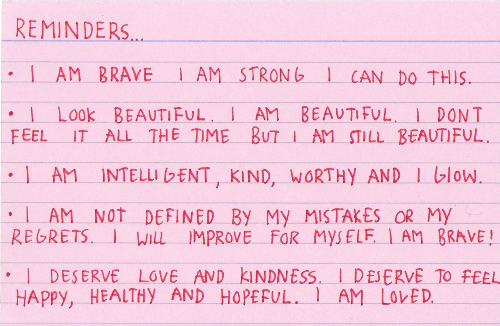 REMINDERS...
• I AM BRAVE I AM STRONG I CAN DO THIS.
• I LOOK BEAUTIFUL. I AM BEAUTIFUL. I DONT
FEEL IT ALL THE TIME BUT I AM STILL BEAUTIFUL.
• I AM INTELLIGENT, KIND, WORTHY AND I GLOW.
• I AM NOT DEFINED BY MY MISTAKES OR MY
REGRETS. I WILL IMPROVE FOR MYSELF. I AM BRAVE!
• I DESERVE LOVE AND KINDNESS. I DESERVE TO FEEL
HAPPY, HEALTHY AND HOPEFUL. I AM LOVED.